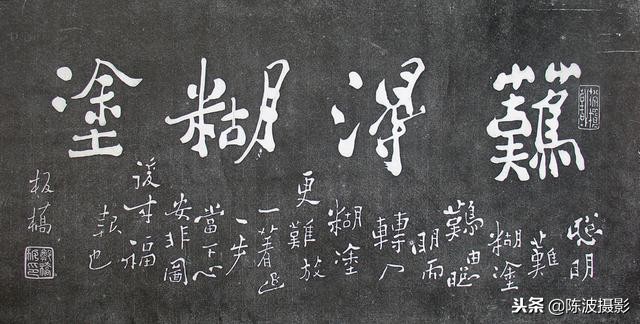 難得糊塗
聰明
難
糊塗
難由聰
明而
轉入
糊塗
更難放
一着退
一步
當下心
安非圖
後來福
報也
板橋
头条 @陈波摄影